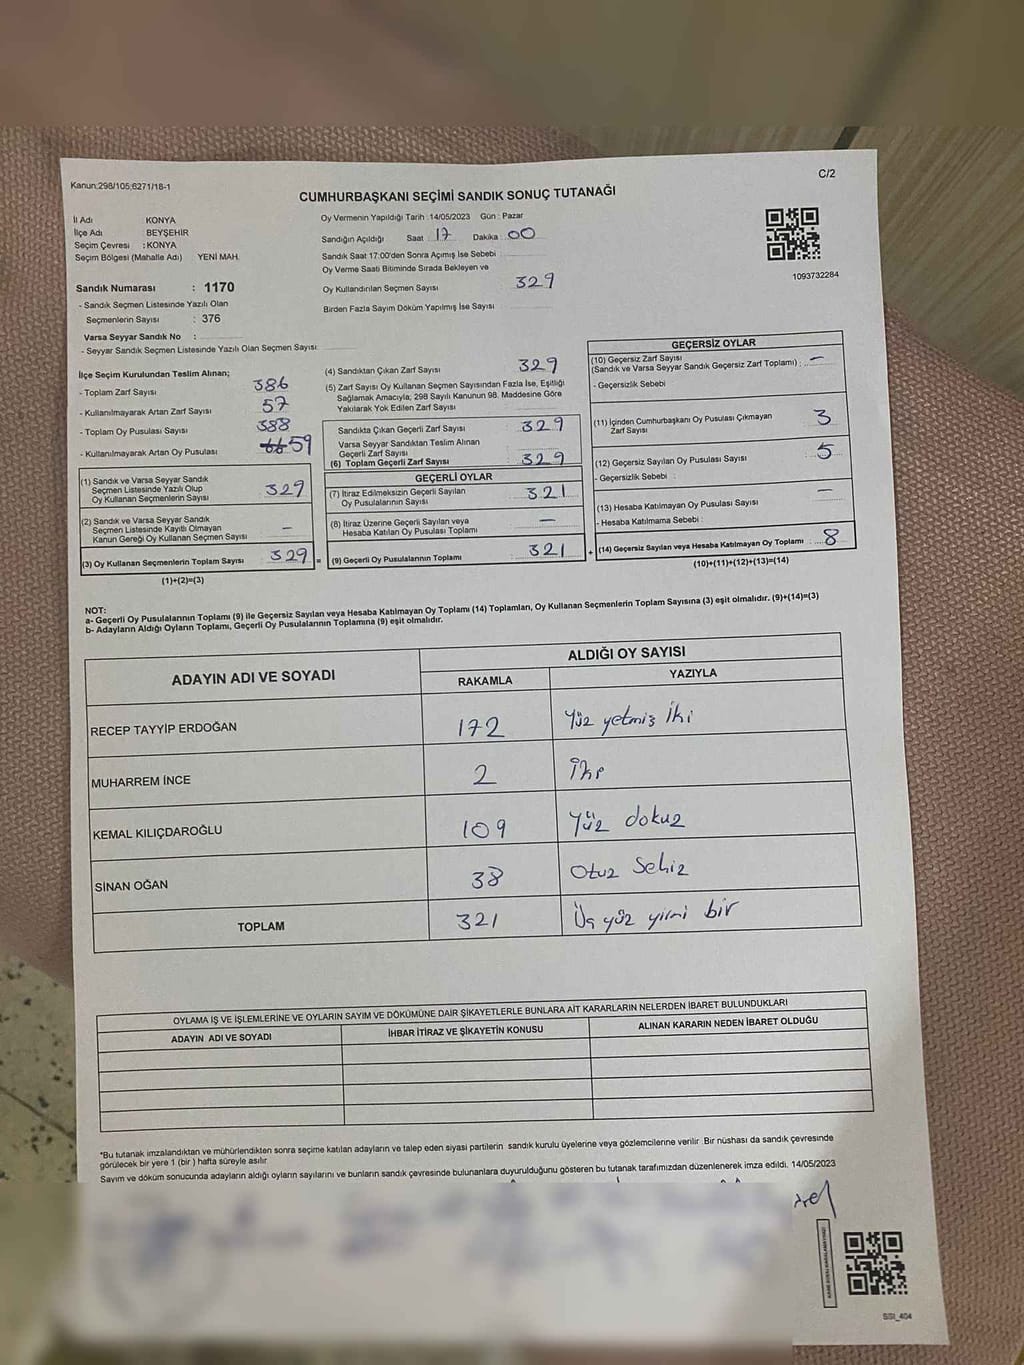 Kanun;298/105;6271/18-1
C/2
CUMHURBAŞKANI SEÇİMİ SANDIK SONUÇ TUTANAĞI
İl Adı : KONYA
İlçe Adı : BEYŞEHİR
Seçim Çevresi : KONYA
Seçim Bölgesi (Mahalle Adı) YENİ MAH.
Sandık Numarası : 1170
- Sandık Seçmen Listesinde Yazılı Olan
Seçmenlerin Sayısı : 376
Varsa Seyyar Sandık No :
- Seyyar Sandık Seçmen Listesinde Yazılı Olan Seçmen Sayısı:
Oy Vermenin Yapıldığı Tarih :14/05/2023 Gün : Pazar
Sandığın Açıldığı Saat 17 Dakika : 00
Sandık Saat 17:00'den Sonra Açımış İse Sebebi
Oy Verme Saati Bitiminde Sırada Bekleyen ve
Oy Kullandırılan Seçmen Sayısı 329
Birden Fazla Sayım Döküm Yapılmış İse Sayısı
1093732284
İlçe Seçim Kurulundan Teslim Alınan;
- Toplam Zarf Sayısı 386
- Kullanılmayarak Artan Zarf Sayısı 57
- Toplam Oy Pusulası Sayısı 388
- Kullanılmayarak Artan Oy Pusulası 59
(1) Sandık ve Varsa Seyyar Sandık
Seçmen Listesinde Yazılı Olup
Oy Kullanan Seçmenlerin Sayısı 329
(2) Sandık ve Varsa Seyyar Sandık
Seçmen Listesinde Kayıtlı Olmayan
Kanun Gereği Oy Kullanan Seçmen Sayısı –
(3) Oy Kullanan Seçmenlerin Toplam Sayısı 329 =
(1)+(2)=(3)
(4) Sandıktan Çıkan Zarf Sayısı 329
(5) Zarf Sayısı Oy Kullanan Seçmen Sayısından Fazla İse, Eşitliği
Sağlamak Amacıyla; 298 Sayılı Kanunun 98. Maddesine Göre
Yakılarak Yok Edilen Zarf Sayısı
Sandıkta Çıkan Geçerli Zarf Sayısı 329
Varsa Seyyar Sandıktan Teslim Alınan
Geçerli Zarf Sayısı
(6) Toplam Geçerli Zarf Sayısı 329
GEÇERLİ OYLAR
(7) İtiraz Edilmeksizin Geçerli Sayılan
Oy Pusulalarının Sayısı 321
(8) İtiraz Üzerine Geçerli Sayılan veya
Hesaba Katılan Oy Pusulası Toplamı –
(9) Geçerli Oy Pusulalarının Toplamı 321 +
GEÇERSİZ OYLAR
(10) Geçersiz Zarf Sayısı
(Sandık ve Varsa Seyyar Sandık Geçersiz Zarf Toplamı) : –
- Geçersizlik Sebebi
(11) İçinden Cumhurbaşkanı Oy Pusulası Çıkmayan
Zarf Sayısı 3
(12) Geçersiz Sayılan Oy Pusulası Sayısı 5
- Geçersizlik Sebebi :
(13) Hesaba Katılmayan Oy Pusulası Sayısı –
- Hesaba Katılmama Sebebi :
(14) Geçersiz Sayılan veya Hesaba Katılmayan Oy Toplamı : 8
(10)+(11)+(12)+(13)=(14)
NOT:
a- Geçerli Oy Pusulalarının Toplamı (9) ile Geçersiz Sayılan veya Hesaba Katılmayan Oy Toplamı (14) Toplamları, Oy Kullanan Seçmenlerin Toplam Sayısına (3) eşit olmalıdır. (9)+(14)=(3)
b- Adayların Aldığı Oyların Toplamı, Geçerli Oy Pusulalarının Toplamına (9) eşit olmalıdır.
ADAYIN ADI VE SOYADI ALDIĞI OY SAYISI
RAKAMLA YAZIYLA
RECEP TAYYİP ERDOĞAN 172 Yüz yetmiş İki
MUHARREM İNCE 2 İki
KEMAL KILIÇDAROĞLU 109 Yüz dokuz
SİNAN OĞAN 38 Otuz Sekiz
TOPLAM 321 Üç yüz yirmi bir
OYLAMA İŞ VE İŞLEMLERİNE VE OYLARIN SAYIM VE DÖKÜMÜNE DAİR ŞİKAYETLERLE BUNLARA AİT KARARLARIN NELERDEN İBARET BULUNDUKLARI
ADAYIN ADI VE SOYADI İHBAR İTİRAZ VE ŞİKAYETİN KONUSU ALINAN KARARIN NEDEN İBARET OLDUĞU
*Bu tutanak imzalandıktan ve mühürlendikten sonra seçime katılan adayların ve talep eden siyasi partilerin sandık kurulu üyelerine veya gözlemcilerine verilir. Bir nüshası da sandık çevresinde
görülecek bir yere 1 (bir ) hafta süreyle asılır
Sayım ve döküm sonucunda adayların aldığı oyların sayılarını ve bunların sandık çevresinde bulunanlara duyurulduğunu gösteren bu tutanak tarafımızdan düzenlenerek imza edildi. 14/05/2023
SSI_404